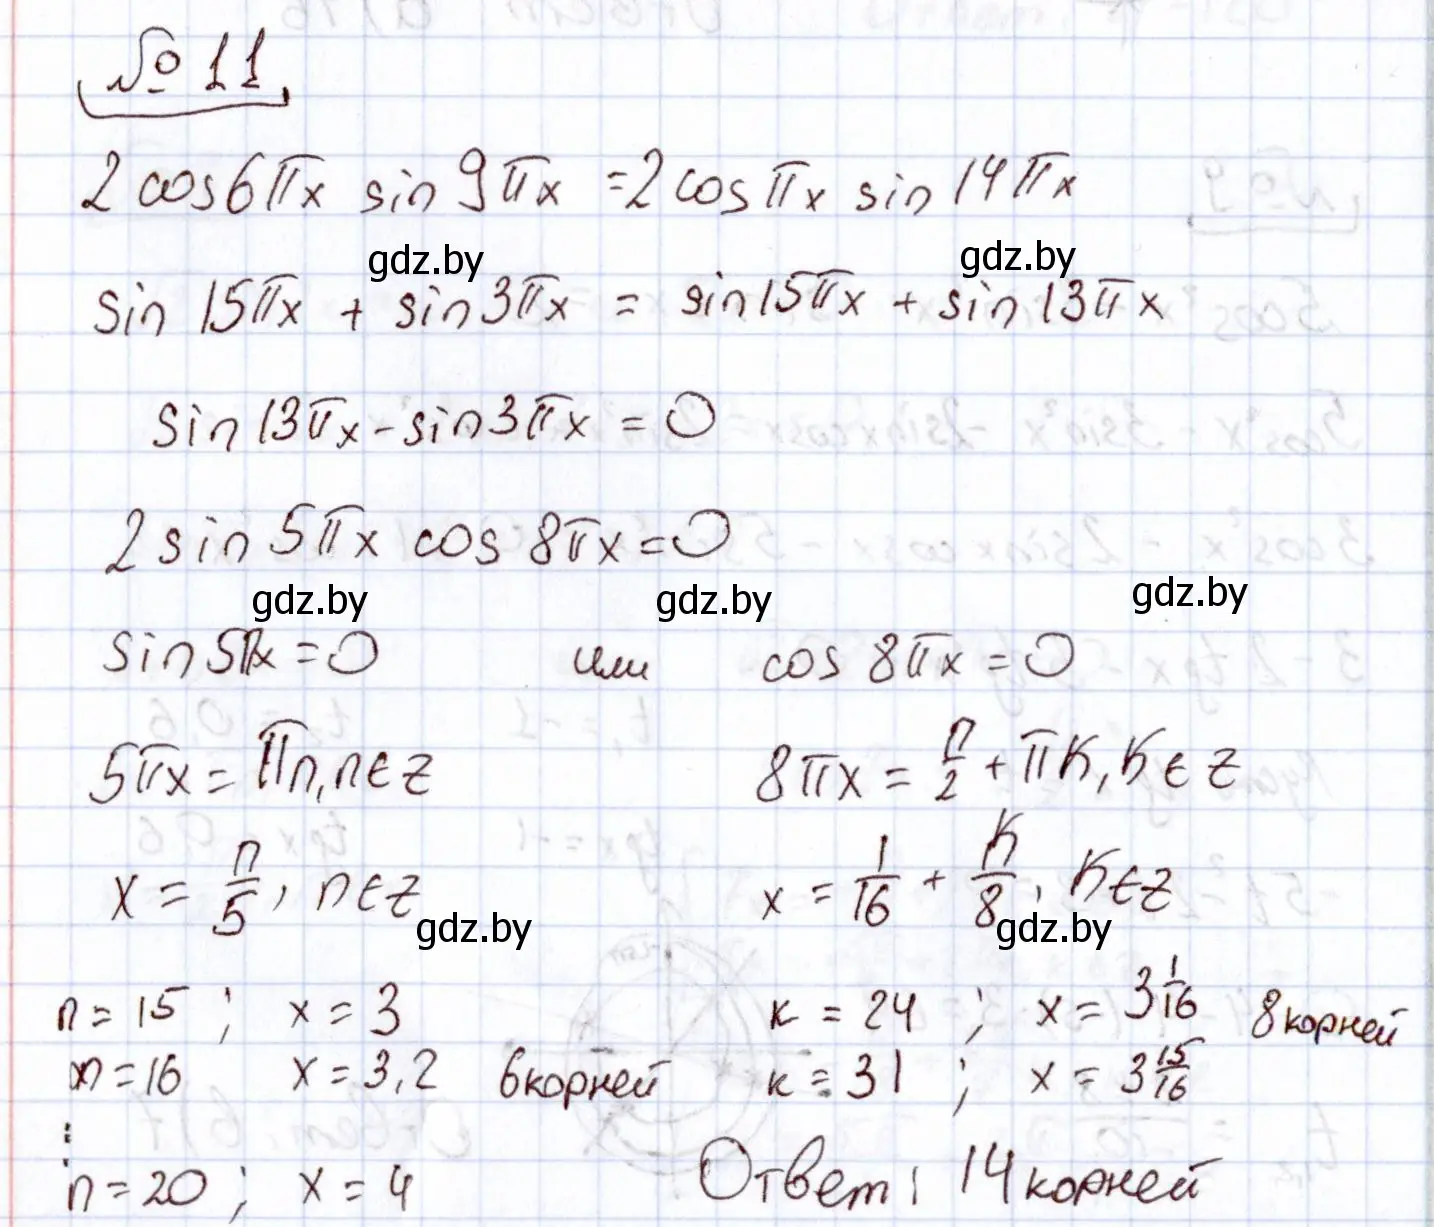 № 11
2 cos 6πx sin 9πx = 2 cos πx sin 14πx
gdz.by gdz.by
sin 15πx + sin 3πx = sin 15πx + sin 13πx
sin 13πx - sin 3πx = 0
2 sin 5πx cos 8πx = 0
gdz.by gdz.by gdz.by
sin 5πx = 0 или cos 8πx = 0
5πx = πn, n∈z 8πx = π/2 + πk, k∈z
x = n/5, n∈z x = 1/16 + k/8, k∈z
gdz.by gdz.by
n = 15 ; x = 3 k = 24 ; x = 3 1/16 8 корней
n = 16 x = 3,2 6 корней k = 31 ; x = 3 15/16
⋮
n = 20 ; x = 4 Ответ: 14 корней